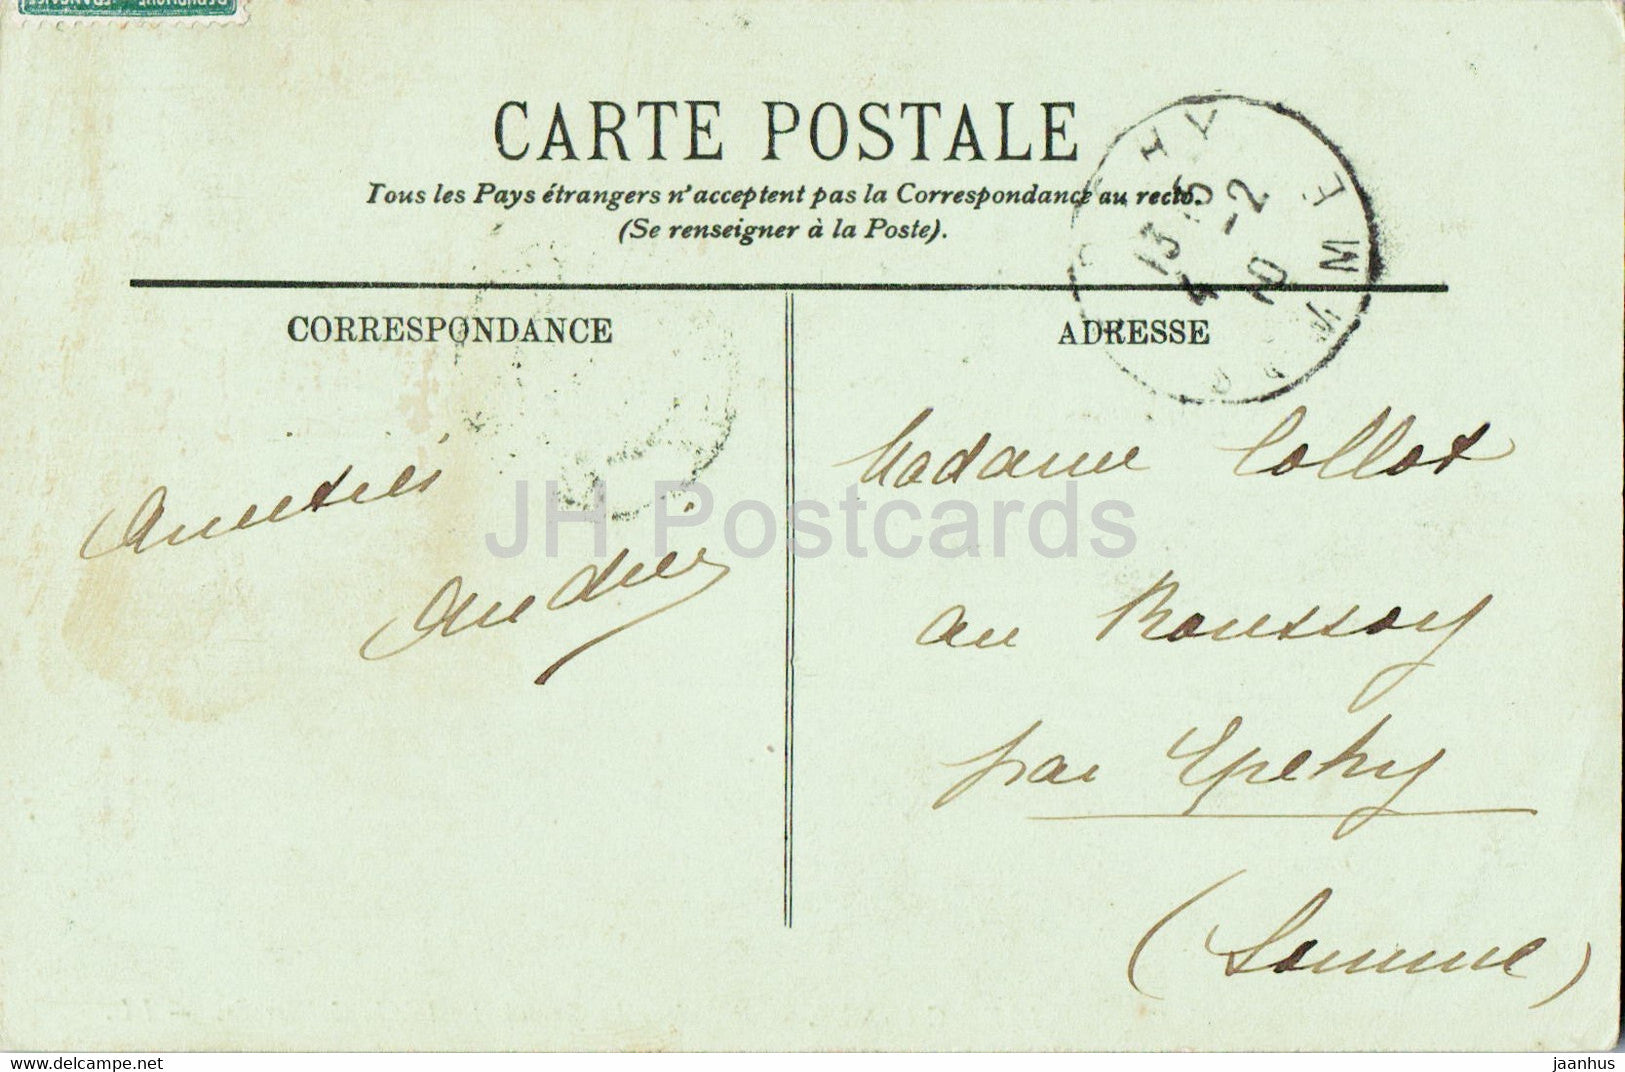 RÉPUBLIQUE FRANÇAISE
CARTE POSTALE
Tous les Pays étrangers n'acceptent pas la Correspondance au recto.
(Se renseigner à la Poste).
CORRESPONDANCE
ADRESSE
13 15
4 -2
10
SOMME
Amitiés
Andrée
Madame Collot
au Roussoy
par Epehy
(Somme)
JH Postcards
www.delcampe.net
jaanhus